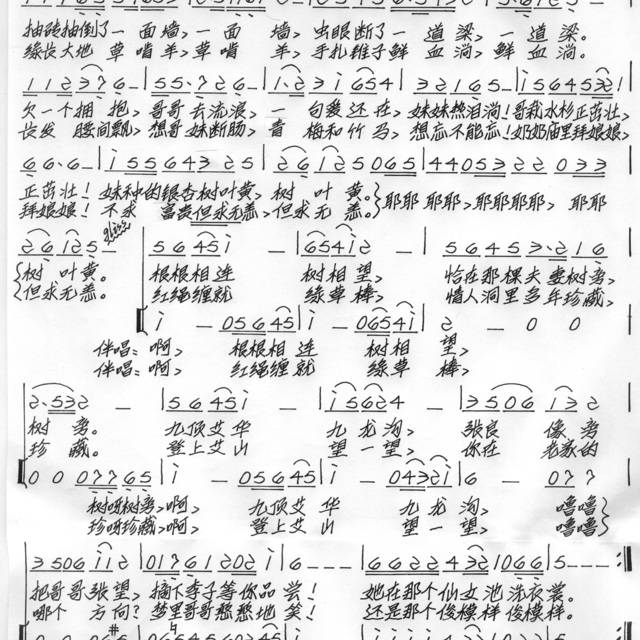 抽砖抽倒了一面墙,一面 墙,虫眼断了一道梁,一道梁。
缘长大地 草啃羊,草啃 羊,手扎锥子鲜 血淌,鲜 血淌。
1 1 2 3 7 6 - | 5 5· 7 2 6 - | 1· 2 3 i 6 5 4 | 3 2 1 6 5 - | i 5 6 4 5 3 2 |
欠一个拥 抱,哥哥去流浪,一 句爱还在,妹妹热泪淌!哥栽水杉正茁壮,
长发 腰间飘,想哥妹断肠,青 梅和竹马,想忘不能忘!奶奶庙里拜娘娘,
6 6· 6 - | i 5 5 6 4 3 2 5 | 2 6 i 2 5 0 6 5 | 4 4 0 5 3 2 2 0 3 3
正茁壮!妹种的银杏树叶黄,树 叶 黄。耶耶耶,耶耶耶耶,耶耶
拜娘娘!不求 富贵但求无恙,但求无 恙。
2 6 i 2 5 - | 5 6 4 5 i - | 6 5 4 i 2 - | 5 6 4 5 3· 2 1 6
gliss
树 叶 黄。 根根相连 树相 望, 恰在那棵夫妻树旁,
但求无恙。 红绳缠就 绿草 棒, 情人洞里多年珍藏,
i - 0 5 6 4 5 | i - 0 6 5 4 i | 2 - 0 0
伴唱:啊, 根根相 连 树相 望,
伴唱:啊, 红绳缠就 绿草 棒,
2· 5 3 2 - | 5 6 4 5 i - | i 5 6 2 4 - | 3 5 0 6 i 3 2
树 旁。 九顶艾华 九龙沟, 张良 像旁
珍 藏。 登上艾山 望一望, 你在 老家的
0 0 0 7 7 6 5 | i - 0 5 6 4 5 | i - 0 4 3 2 i | 6 - 0 7 7
树呀树旁,啊, 九顶艾华 九龙沟, 噜噜
珍呀珍藏,啊, 登上艾山 望一望, 噜噜
3 5 0 6 i i 2 | 0 1 7 6 1 2 0 2 i | 6 - - - | 6 6 2 2 4 3 2 | 1 0 6 6 | 5 - - -
把哥哥张望,摘下李子等你品尝! 她在那个仙女池洗衣裳。
哪个 方向?梦里哥哥憨憨地笑! 还是那个俊模样俊模样。